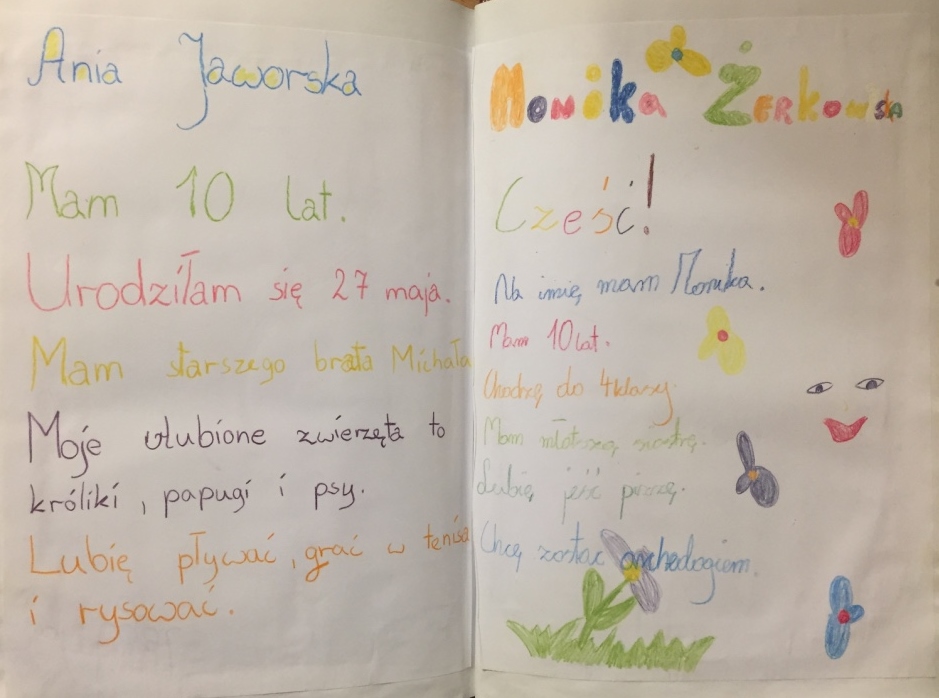 Ania Jaworska
Mam 10 lat.
Urodziłam się 27 maja.
Mam starszego brata Michała
Moje ulubione zwierzęta to
króliki, papugi i psy.
Lubię pływać, grać w tenisa
i rysować.
Monika Żerkowska
Cześć!
Na imię mam Monika.
Mam 10 lat.
Chodzę do 4 klasy.
Mam młotszą siostrę.
Lubię jeść pizzę.
Chcę zostać archeologiem.